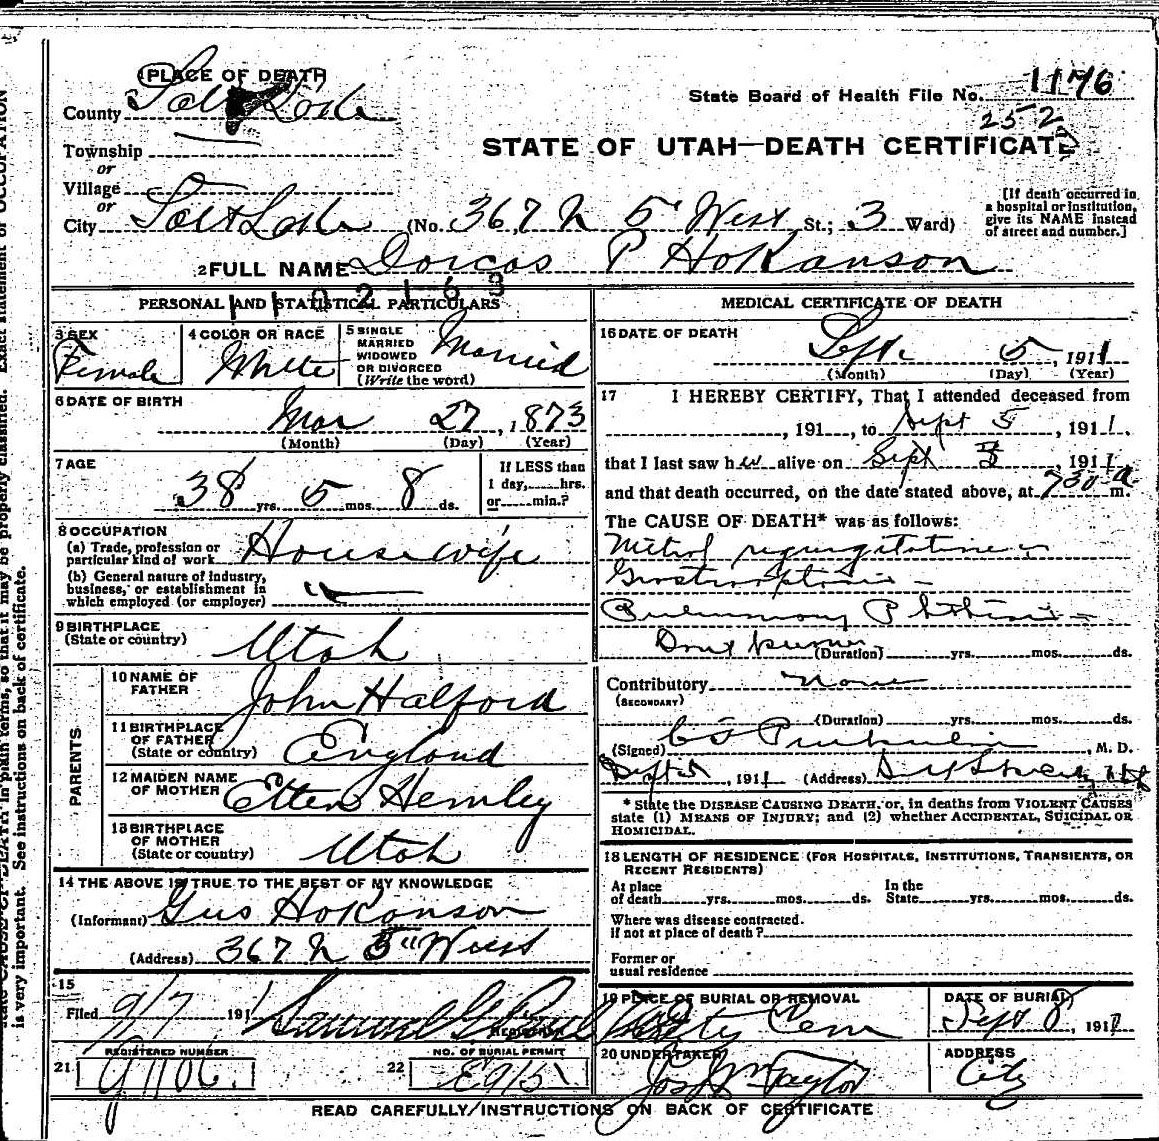 1 PLACE OF DEATH
County Salt Lake
State Board of Health File No. 1176
252
Township
or
STATE OF UTAH—DEATH CERTIFICATE
Village
or
City Salt Lake (No. 367 N 5" West St.; 3 Ward)
[If death occurred in
a hospital or institution,
give its NAME instead
of street and number.]
2 FULL NAME Dorcas P HoKanson
1102163
PERSONAL AND STATISTICAL PARTICULARS
3 SEX
Female
4 COLOR OR RACE
White
5 SINGLE
MARRIED
WIDOWED
OR DIVORCED
(Write the word)
Married
6 DATE OF BIRTH
Mar 27, 1873
(Month) (Day) (Year)
7 AGE
38 yrs. 5 mos. 8 ds.
If LESS than
1 day, hrs.
or min.?
8 OCCUPATION
(a) Trade, profession or
particular kind of work Housewife
(b) General nature of industry,
business, or establishment in
which employed (or employer)
9 BIRTHPLACE
(State or country) Utah
PARENTS
10 NAME OF
FATHER John Halford
11 BIRTHPLACE
OF FATHER
(State or country) England
12 MAIDEN NAME
OF MOTHER Ellen Hemley
13 BIRTHPLACE
OF MOTHER
(State or country) Utah
14 THE ABOVE IS TRUE TO THE BEST OF MY KNOWLEDGE
(Informant) Gus HoKanson
(Address) 367 N 5" West
15
Filed 9/7 191 Samuel G. Paul
REGISTRAR
REGISTERED NUMBER
21
NO. OF BURIAL PERMIT
22
MEDICAL CERTIFICATE OF DEATH
16 DATE OF DEATH
Sept. 5, 1911
(Month) (Day) (Year)
17 I HEREBY CERTIFY, That I attended deceased from
, 191 , to Sept 5, 1911,
that I last saw her alive on Sept 5, 1911,
and that death occurred, on the date stated above, at 730 a m.
The CAUSE OF DEATH* was as follows:
Mitral regurgitation
Pulmonary Phthisis
Dont know
(Duration) yrs. mos. ds.
Contributory none
(SECONDARY)
(Duration) yrs. mos. ds.
(Signed) , M. D.
Sept 5, 1911 (Address)
* State the DISEASE CAUSING DEATH, or, in deaths from VIOLENT CAUSES
state (1) MEANS OF INJURY; and (2) whether ACCIDENTAL, SUICIDAL OR
HOMICIDAL.
18 LENGTH OF RESIDENCE (FOR HOSPITALS, INSTITUTIONS, TRANSIENTS, OR
RECENT RESIDENTS)
At place
of death yrs. mos. ds.
In the
State yrs. mos. ds.
Where was disease contracted.
if not at place of death?
Former or
usual residence
19 PLACE OF BURIAL OR REMOVAL
City Cem
DATE OF BURIAL
Sept 8, 1911
20 UNDERTAKER
Jos Wm Taylor
ADDRESS
City
READ CAREFULLY INSTRUCTIONS ON BACK OF CERTIFICATE
state CAUSE OF DEATH in plain terms, so that it may be properly classified. Exact statement of OCCUPATION
is very important. See instructions on back of certificate.